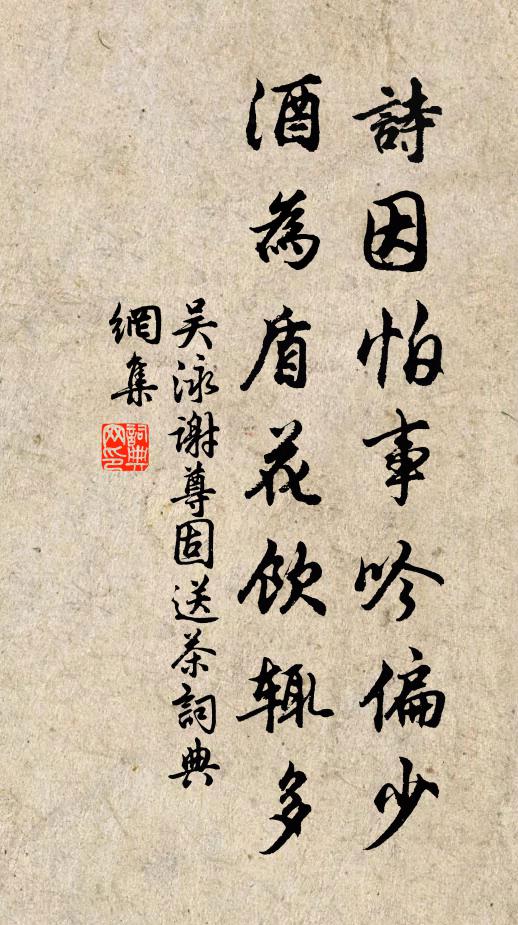 詩因怕事吟偏少
酒為盾花飲輙多
吴泳謝尊固送茶詞典
網集
詞典網印